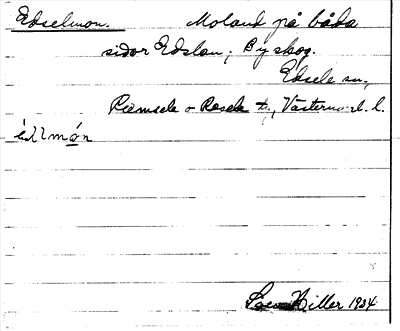 Edselmon. Moland på båda
sidor Edslan; By skog.
Edsele sn,
Ramsele o Resele t., Västernorrl. l.
Hiller 1934